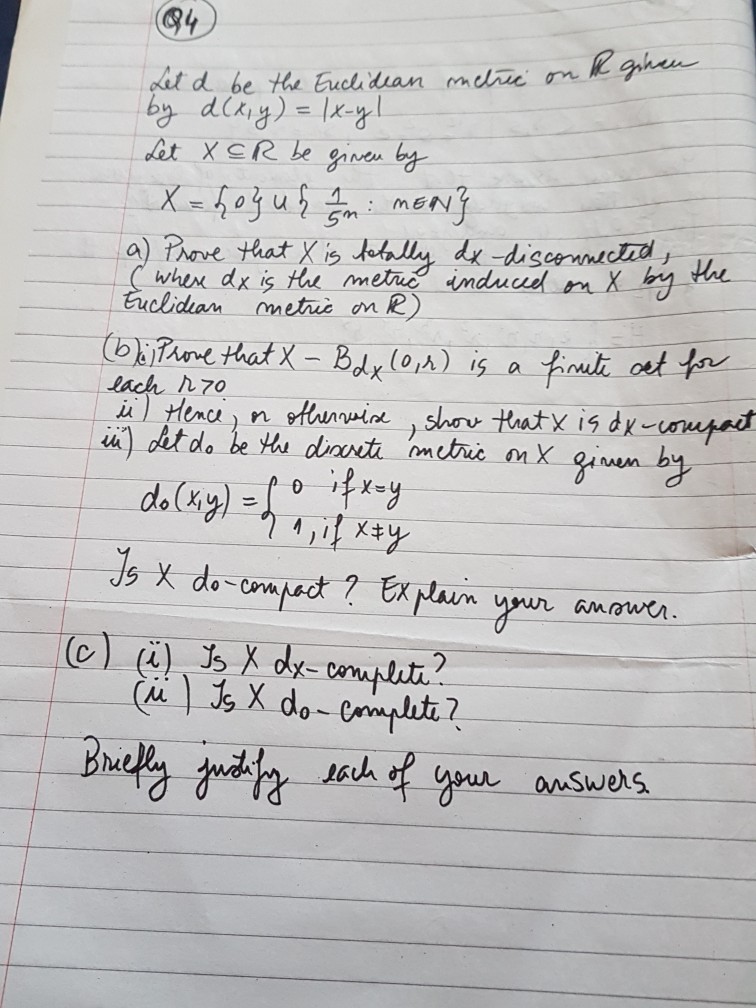 Q4
Let d be the Euclidean metric on ℝ given
by d(x,y) = |x-y|
Let X ⊆ ℝ be given by
X = {0} ∪ { 1/5n : n∈ℕ}
a) Prove that X is totally dx-disconnected,
(where dx is the metric induced on X by the
Euclidean metric on ℝ)
(b) i) Prove that X - Bdx(0,r) is a finite set for
each r>0
ii) Hence, or otherwise, show that X is dx-compact
iii) Let do be the discrete metric on X given by
do(x,y) = { 0 if x=y
1, if x≠y
Is X do-compact? Explain your answer.
(c) (i) Is X dx-complete?
(ii) Is X do-complete?
Briefly justify each of your answers.